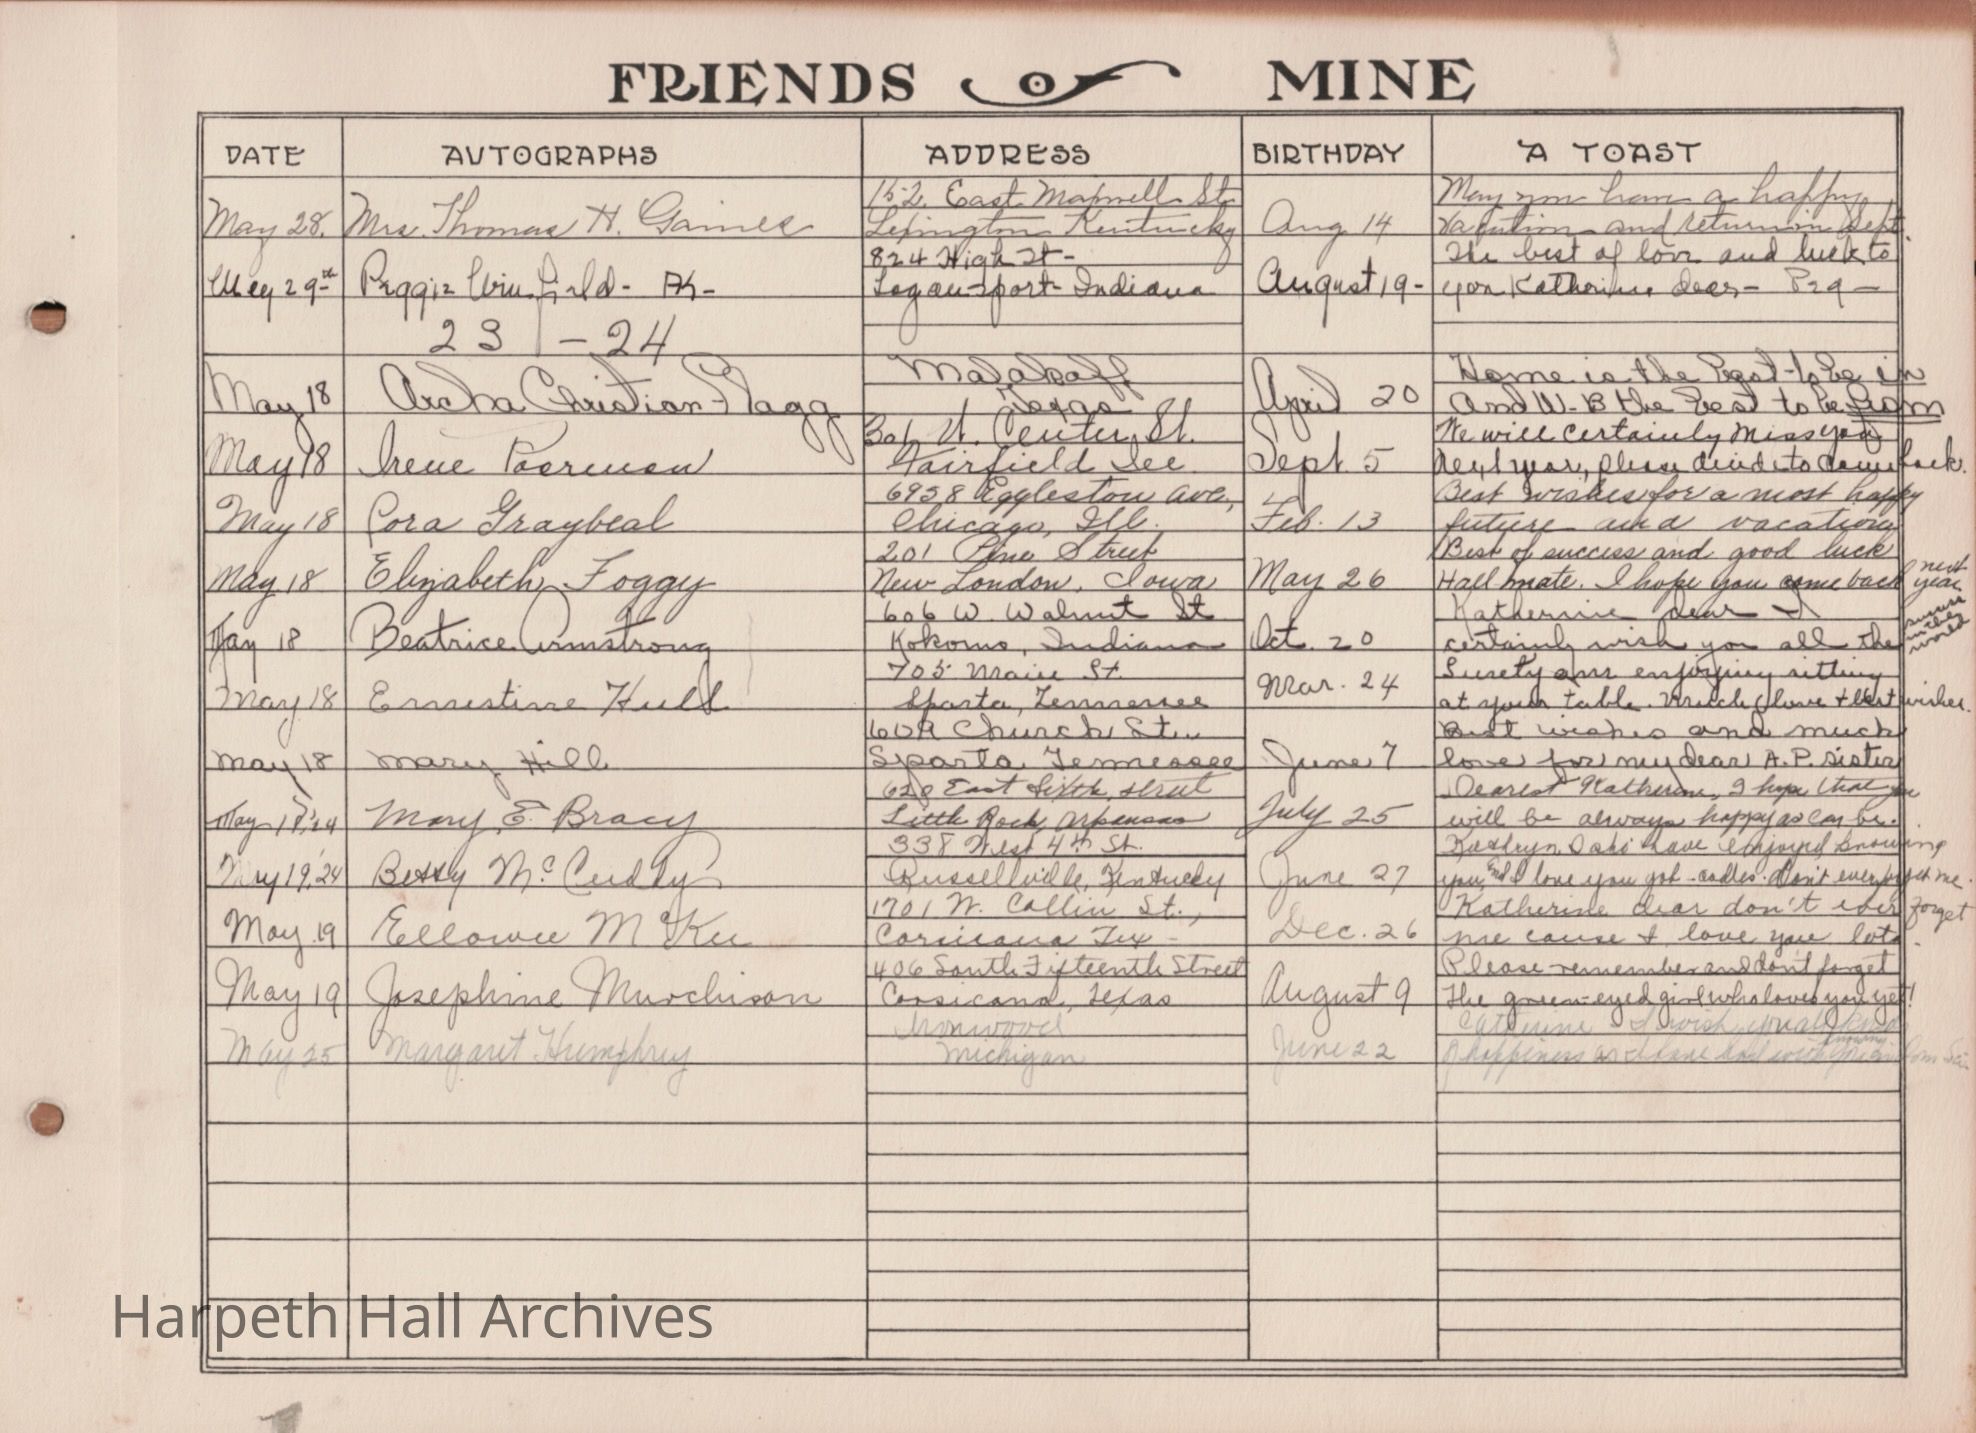 FRIENDS of MINE
DATE AUTOGRAPHS ADDRESS BIRTHDAY A TOAST
152 East Maxwell St. May you have a happy
May 28. Mrs. Thomas H. Gaines Lexington Kentucky Aug 14 vacation and return in Sept.
824 High St- The best of love and luck to
May 29th Peggie Winfield- Logansport- Indiana August 19- you Katherine dear- Peg-
23 - 24
Malakoff Home is the best to be in
May 18 Archa Christian Flagg Texas April 20 And W-B the best to be from
301 W. Center St. We will certainly miss you
May 18 Irene Poorman Fairfield Sept. 5 next year, please decide to come back.
6958 Eggleston Ave., Best wishes for a most happy
May 18 Cora Graybeal Chicago, Ill. Feb. 13 future and vacation
201 Pine Street Best of success and good luck
May 18 Elizabeth Foggy New London, Iowa May 26 Hall mate. I hope you come back next year
606 W. Walnut St Katherine dear I
May 18 Beatrice Armstrong Kokomo, Indiana Oct. 20 certainly wish you all the
705 Main St. Surely am enjoying sitting
May 18 Ernestine Hull Sparta, Tennessee Mar. 24 at your table. Much love + best wishes.
Church St. Best wishes and much
May 18 Mary Hill Sparta Tennessee June 7 love for my dear A.P. sister
620 East Sixth street Dearest Katherine, I hope that you
May 18,'24 Mary E. Bracy Little Rock, Arkansas July 25 will be always happy as can be.
338 West 4th St. Kathryn, have enjoyed knowing
May 19,'24 Betty McCuddy Russellville, Kentucky June 27 you and I love you gob-oodles. Don't ever forget me.
1701 W. Collin St., Katherine dear don't ever forget
May 19 Ellowee McKee Corsicana Tex - Dec. 26 me cause I love you lots.
406 South Fifteenth Street Please remember and don't forget
May 19 Josephine Murchison Corsicana, Texas August 9 the green-eyed girl who loves you yet!
Ironwood Catherine I wish you all kinds
May 25 Margaret Humphrey Michigan June 22 of happiness as I have had with
Harpeth Hall Archives